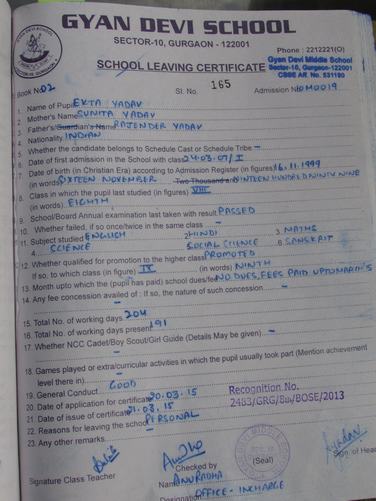 GYAN DEVI SCHOOL
SECTOR-10, GURGAON - 122001
Phone : 2212221(O)
SCHOOL LEAVING CERTIFICATE
Gyan Devi Middle School
Sector-10, Gurgaon-122001
CBSE AR. No. 531190
Book No 02 Sl. No. 165 Admission No
1. Name of Pupil EKTA YADAV
2. Mother's Name SUNITA YADAV
3. Father's/Guardian's Name RAJENDER YADAV
4. Nationality INDIAN
5. Whether the candidate belongs to Schedule Cast or Schedule Tribe -
6. Date of first admission in the School with class 24.03.07/I
7. Date of birth (in Christian Era) according to Admission Register (in figures) 16.11.1999
(in words) SIXTEEN NOVEMBER Two Thousand and NINTEEN HUNDRED NINTY NINE
8. Class in which the pupil last studied (in figures) VIII
(in words) EIGHTH
9. School/Board Annual examination last taken with result PASSED
10. Whether failed, if so once/twice in the same class -
11. Subject studied 1. ENGLISH 2. HINDI 3. MATHS
4. SCIENCE 5. SOCIAL SCIENCE 6. SANSKRIT
12. Whether qualified for promotion to the higher class PROMOTED
If so, to which class (in figure) IX (in words) NINTH
13. Month upto which the (pupil has paid) school dues/fee NO DUES, FEES PAID UPTO MAR'15
14. Any fee concession availed of : If so, the nature of such concession -
15. Total No. of working days 204
16. Total No. of working days present 191
17. Whether NCC Cadet/Boy Scout/Girl Guide (Details May be given) -
18. Games played or extra/curricular activities in which the pupil usually took part (Mention achievement
level there in) -
19. General Conduct GOOD
20. Date of application for certificate 20.03.15
21. Date of issue of certificate 21.03.15
22. Reasons for leaving the school PERSONAL
23. Any other remarks -
Recognition No.
2483/GRG/8th/BOSE/2013
Signature Class Teacher
Checked by
Name ANURADHA
Designation OFFICE - INCHARGE
(Seal)
Sign. of Head